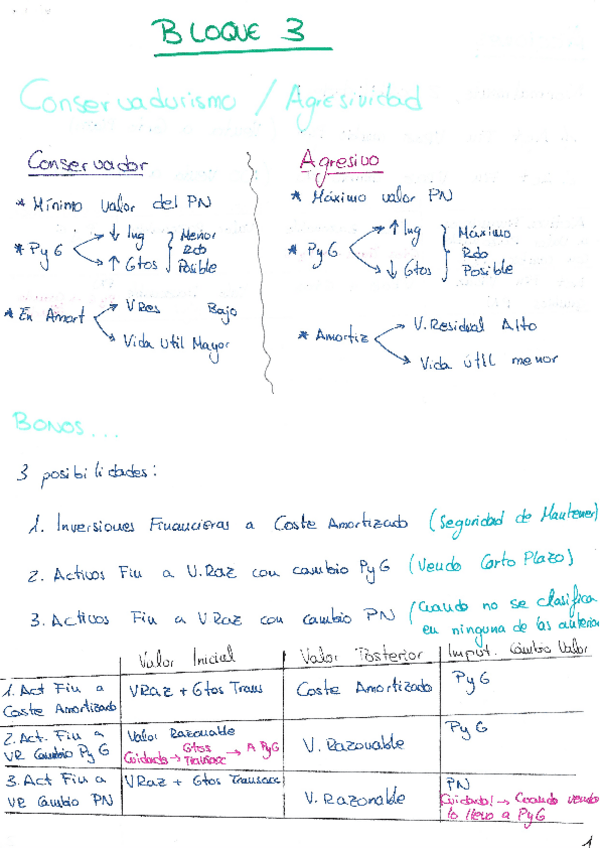 BLOQUE 3
Conservadurismo / Agresividad
Conservador
* Mínimo valor del PN
* PyG
↓ Ing
↑ Gtos
Menor
Rdo
Posible
* En Amort
VRes Bajo
Vida Util Mayor
Agresivo
* Máximo valor PN
* PyG
↑ Ing
↓ Gtos
Máximo
Rdo
Posible
* Amortiz
V. Residual Alto
Vida útil menor
BONOS...
3 posibilidades:
1. Inversiones Financieras a Coste Amortizado (Seguridad de Mantener)
2. Activos Fin a V.Raz con cambio PyG (Vendo Corto Plazo)
3. Activos Fin a VRaz con cambio PN (Cuando no se clasifica
en ninguna de las anterior
Valor Inicial
Valor Posterior
Imput. Cambio Valor
1. Act Fin a
Coste Amortizado
VRaz + Gtos Trans
Coste Amortizado
PyG
2. Act. Fin a
VR Cambio PyG
Valor Razonable
Cuidado → Gtos Transacc → A PyG
V. Razonable
PyG
3. Act Fin a
VR Cambio PN
VRaz + Gtos Transacc
V. Razonable
PN
Cuidado! → Cuando vendo
lo llevo a PyG
1